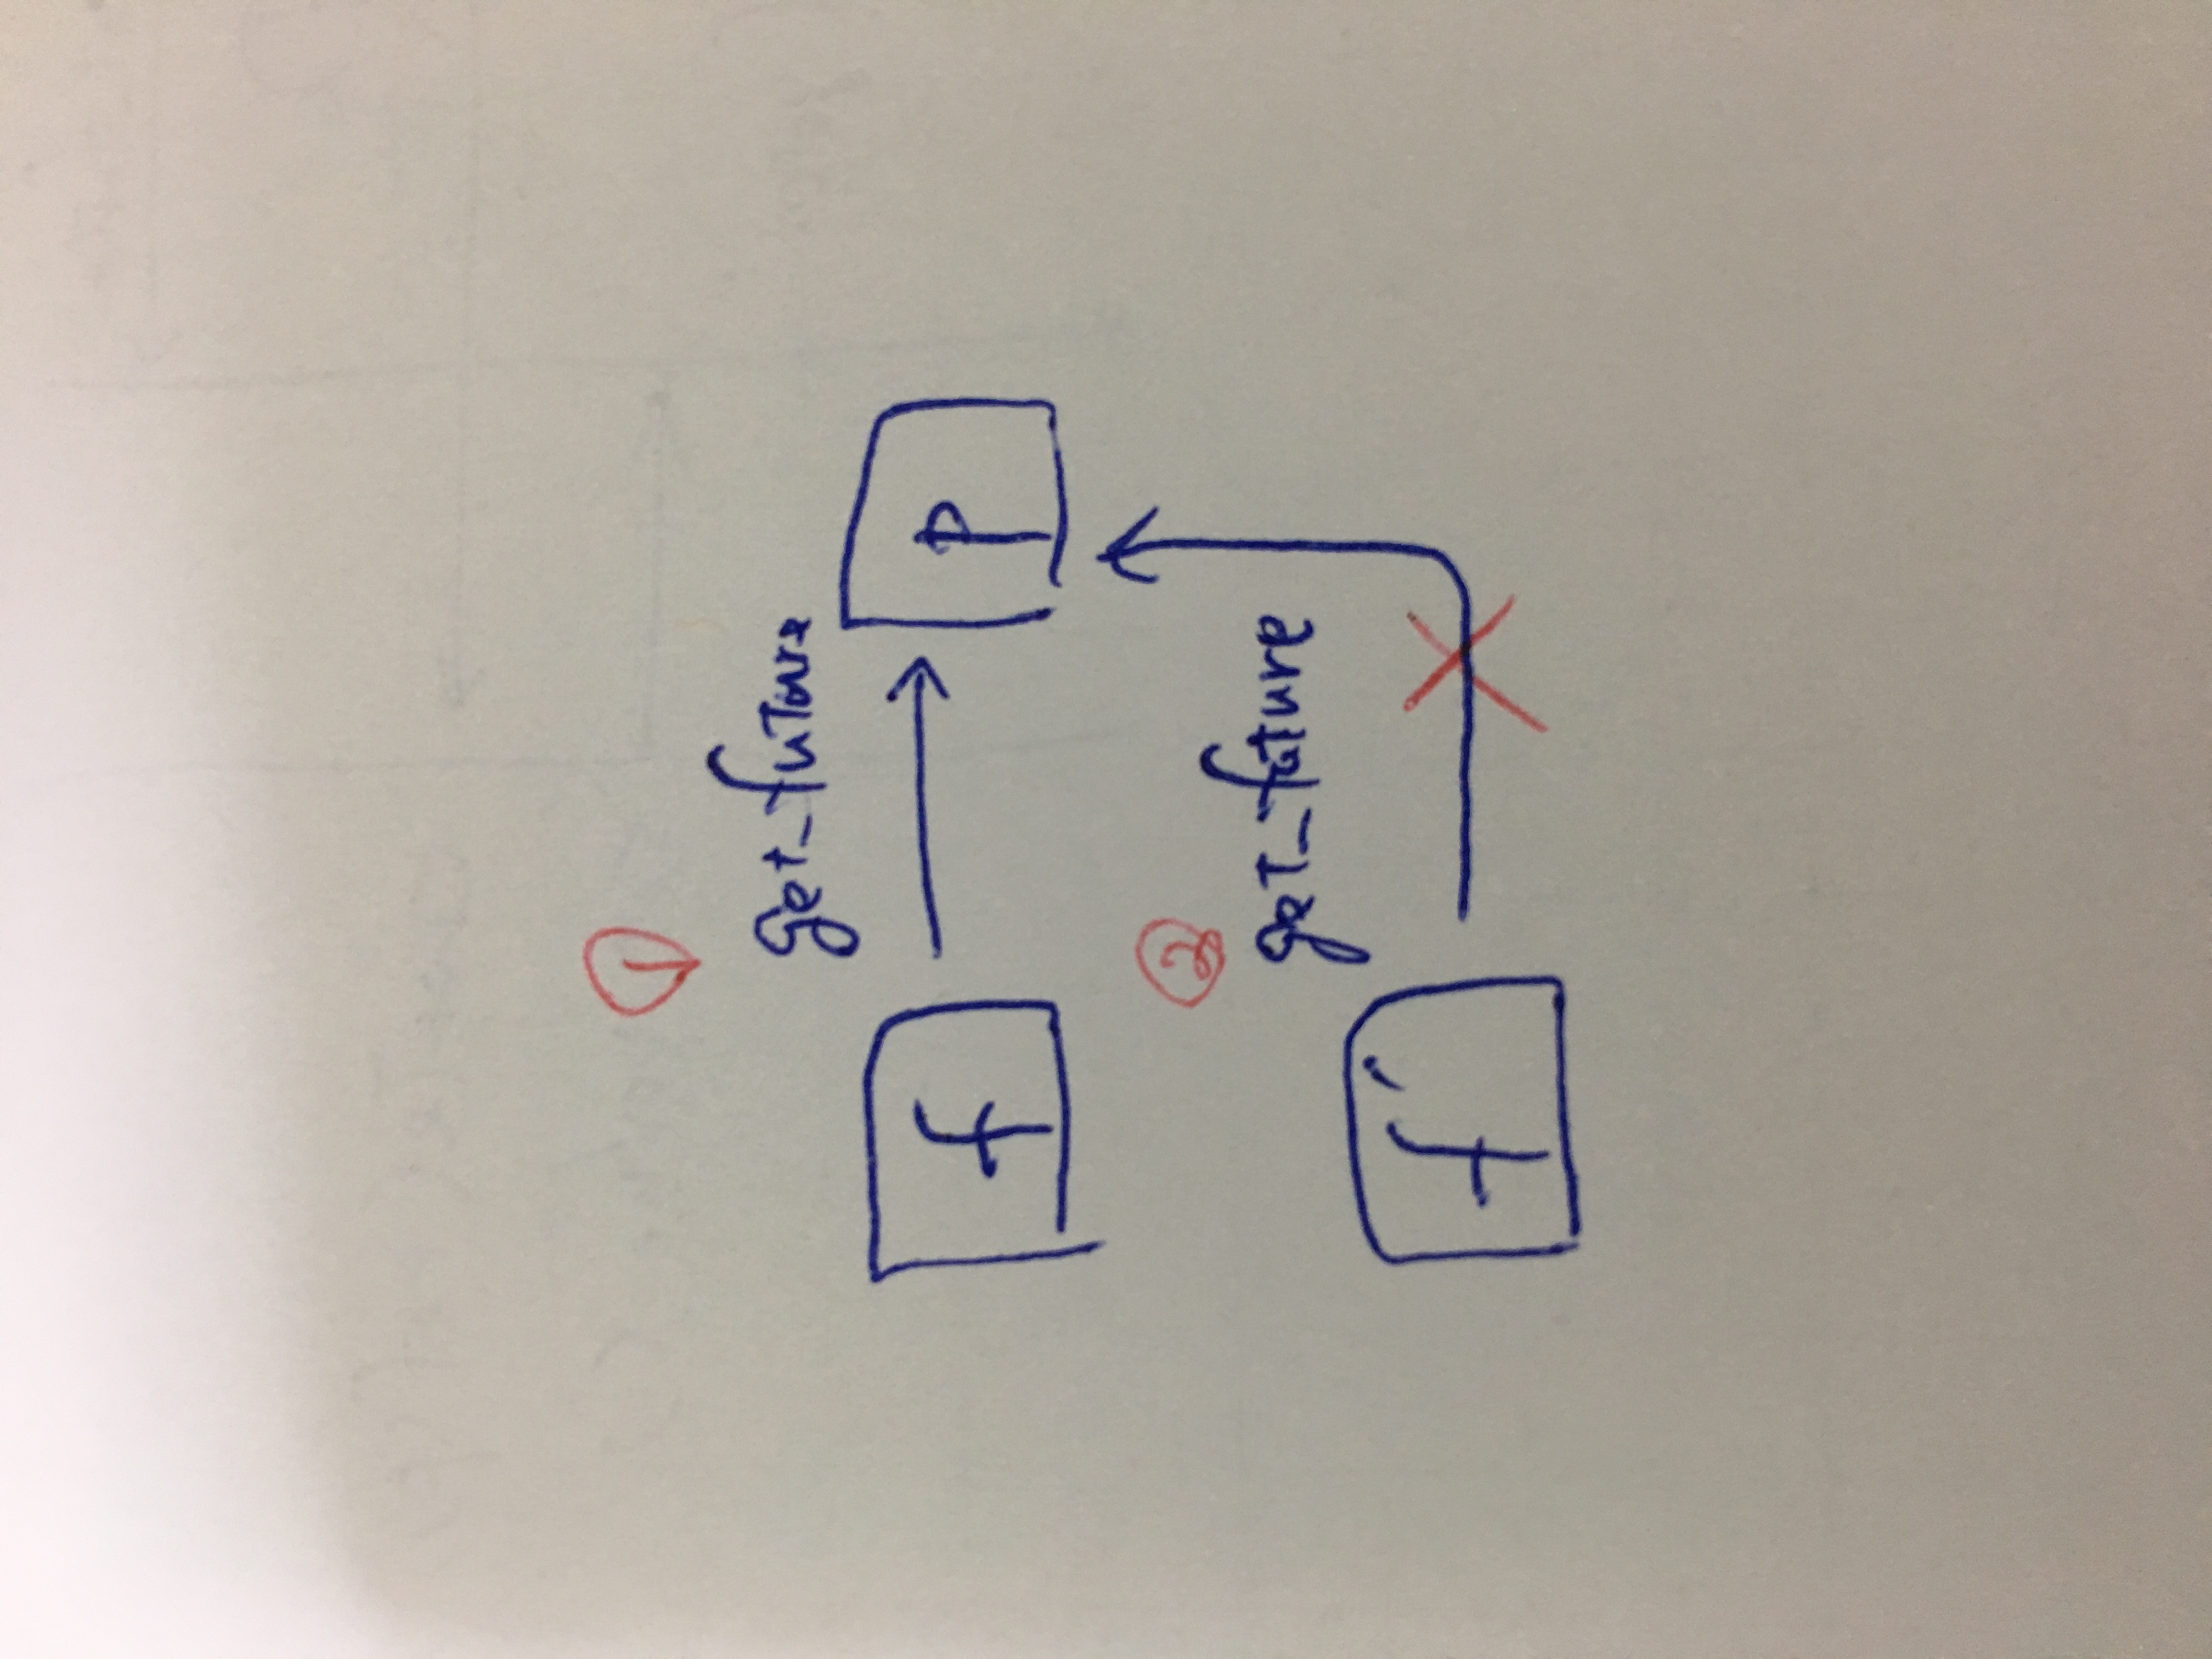 ①
get_future
f
p
②
get_future
f'